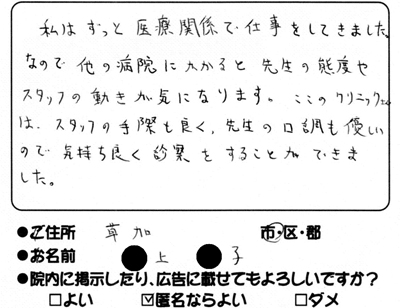 私はずっと医療関係で仕事をしてきました。
なので他の病院にかかると先生の態度や
スタッフの動きが気になります。ここのクリニックさん
は、スタッフの手際も良く、先生の口調も優しい
ので気持ち良く診察をすることができま
した。
●ご住所 草加 市・区・郡
●お名前 ●上 ●子
●院内に掲示したり、広告に載せてもよろしいですか?
□よい ☑匿名ならよい □ダメ